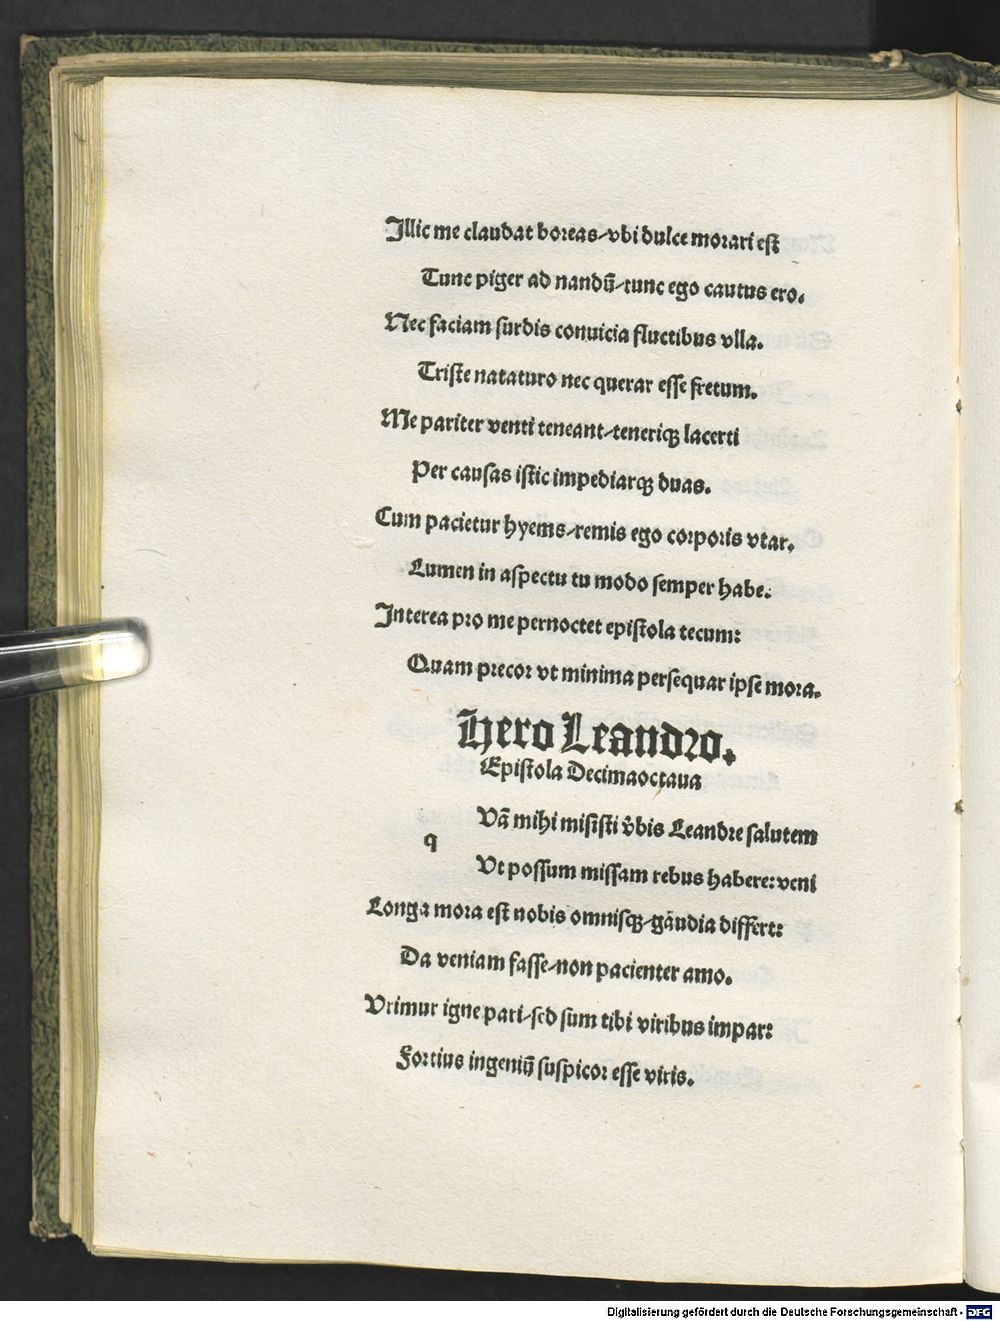 Illic me claudat boreas/vbi dulce morari est
Tunc piger ad nandū/tunc ego cautus ero.
Nec faciam surdis conuicia fluctibus vlla.
Triste nataturo nec querar esse fretum.
Me pariter venti teneant/teneriqꝫ lacerti
Per causas istic impediarqꝫ duas.
Cum pacietur hyems/remis ego corporis vtar.
Lumen in aspectu tu modo semper habe.
Interea pro me pernoctet epistola tecum:
Quam precor vt minima persequar ipse mora.
Hero Leandro.
Epistola Decimaoctaua
q Vā mihi misisti v̄bis Leandre salutem
Vt possum missam rebus habere: veni
Longa mora est nobis omnisqꝫ/gāudia differt:
Da veniam fasse/non pacienter amo.
Vrimur igne pari/sed sum tibi viribus impar:
Fortius ingeniū suspicor esse viris.
Digitalisierung gefördert durch die Deutsche Forschungsgemeinschaft - DFG